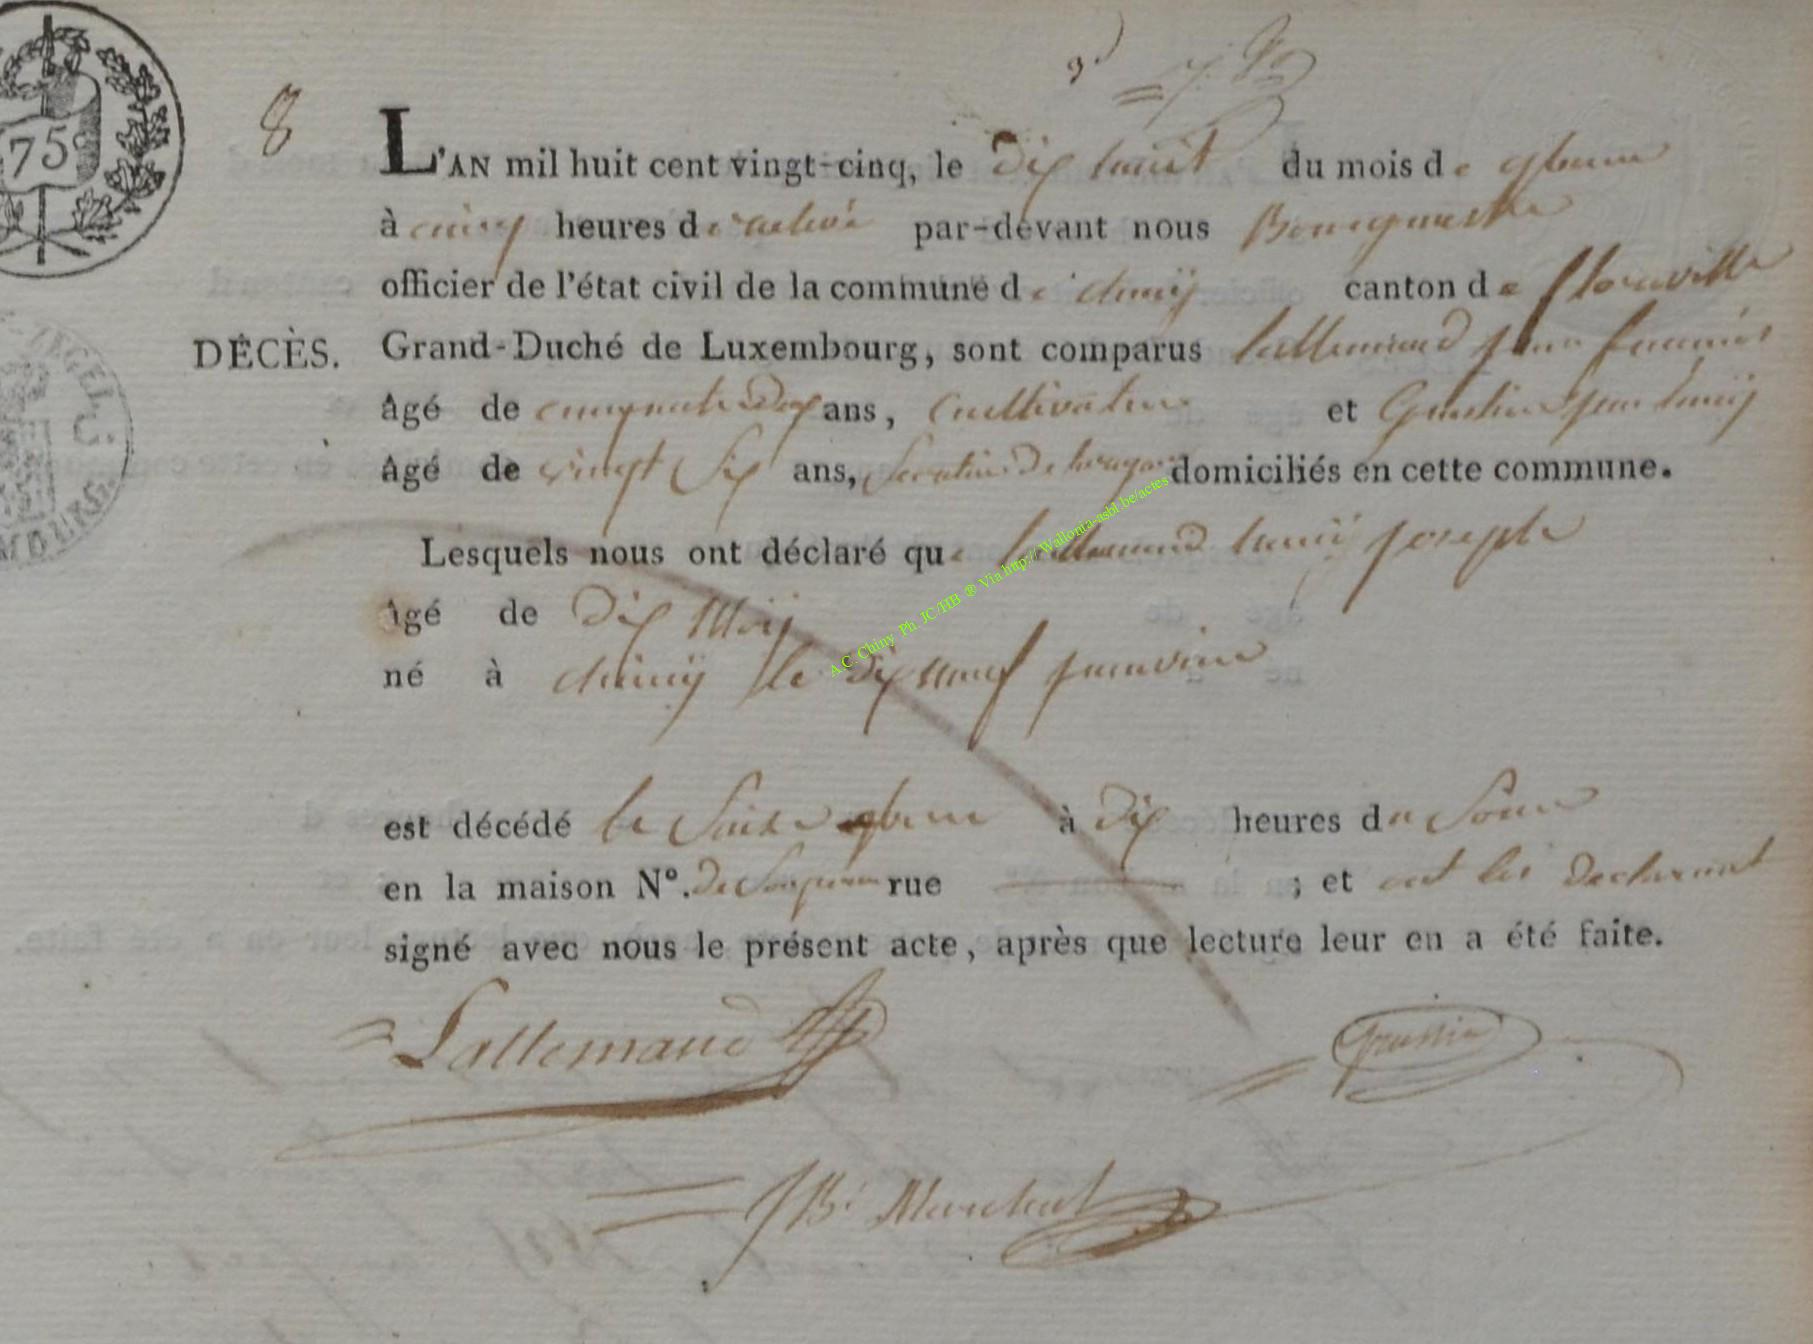 75
8
L'AN mil huit cent vingt-cinq, le dix huit du mois de 9bre
à cinq heures de relevé par-devant nous Bourgmestre
officier de l'état civil de la commune de chiny canton de florenville
DÉCÈS. Grand-Duché de Luxembourg, sont comparus lallemand jean
âgé de cinquante dix ans, Cultivateur et
âgé de vingt six ans, domiciliés en cette commune.
Lesquels nous ont déclaré que lallemand henrÿ joseph
âgé de dix Mois
né à chinÿ le dix neuf janvier
est décédé le Seize 9bre à dix heures du Soir
en la maison N°. de Son père rue ; et ont les declarant
signé avec nous le présent acte, après que lecture leur en a été faite.
Lallemand
JBt Marechal
A.C. Chiny Ph. JC/HB ® Via http://Wallonia-asbl.be/actes